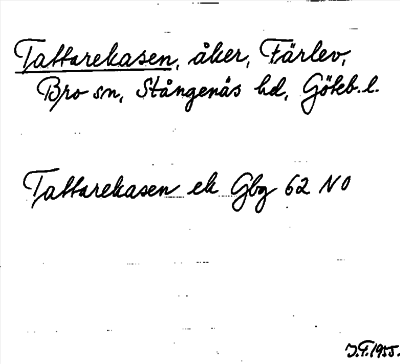 Tattarekasen, åker, Färlev,
Bro sn, Stångenäs hd, Göteb. l.
Tattarekasen ek Gbg 62 NO
J.F. 1955.